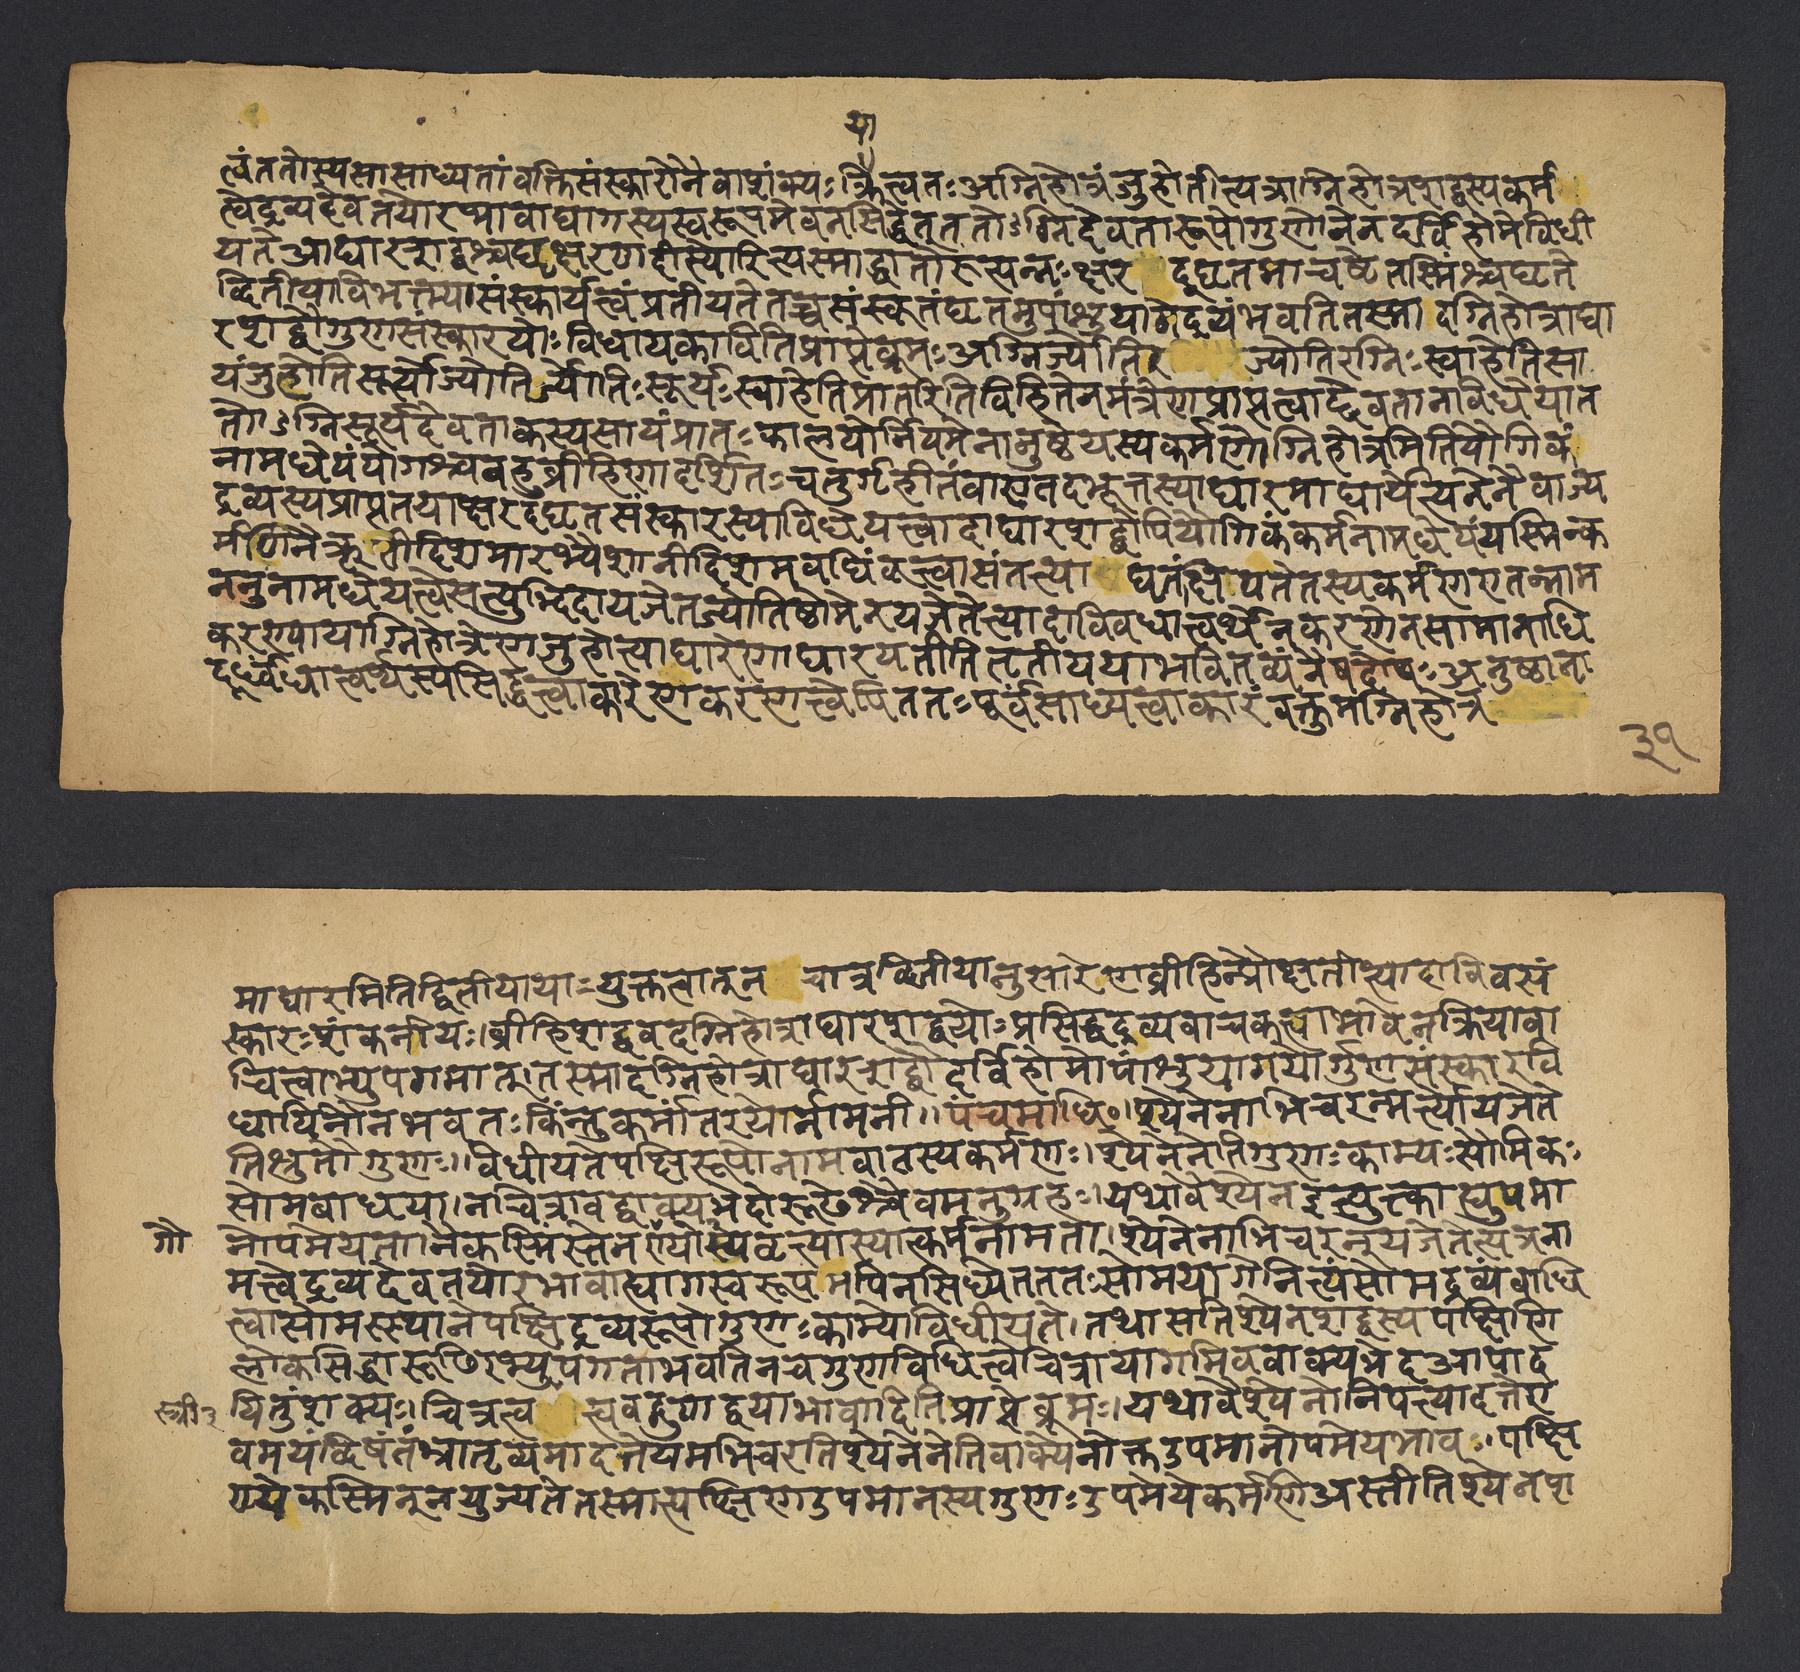 या
त्वं ततोस्य सा साध्यतां वक्ति संस्कारोनैवाशंक्यः क्रित्वतः अग्निहोत्रं जुहोतीत्यत्राग्निहोत्रशब्दस्य कर्म
त्वे द्रव्यदेवतयोरभावाद्यागस्य स्वरूपमेव न सिद्धेत् ततोऽग्निदेवतारूपो गुणोनेन दर्विहोमे विधी
यते आघारशब्दश्च घृ क्षरणदीप्त्योरित्यस्माद्धातोरुत्पन्नः क्षर द्घृतमाचष्टे तस्मिंश्च घृते
द्वितीयाविभक्त्या संस्कार्यत्वं प्रतीयते तच्च संस्कृतं घृतमुपांशुयागे द्रव्यं भवति तस्मा दग्निहोत्राघा
रशब्दौ गुणसंस्कारयोः विधायकाविति प्राप्ते ब्रूमः अग्निर्ज्योति ज्योतिरग्निः स्वाहेति सा
यं जुहोति सूर्यो ज्योतिर्ज्योतिः सूर्यः स्वाहेति प्रातरिति विहितेन मंत्रेण प्राप्तत्वाद्देवता न विधेया त
तोऽग्निसूर्यदेवताकस्य सायंप्रातः कालयोर्नियमेनानुष्ठेयस्य कर्मणोग्निहोत्रमिति यौगिकं
नामधेयं योगश्च बहुव्रीहिणा दर्शितः चतुर्गृहीतं वा एतदभूत्तस्याघारमाघार्येत्यनेनैवाज्य
द्रव्यस्य प्राप्ततया क्षरद्घृतसंस्कारस्याविधेयत्वादाघारशब्दोपि यौगिकं कर्मनामधेयं यस्मिन्क
र्मणि नैऋतीं दिशमारभ्यैशानीं दिशमवधिं कृत्वा संतत्या घृतं क्षिप्यते तस्य कर्मण एतन्नाम
ननु नामधेयत्वे सत्युद्भिदा यजेत ज्योतिष्टोमेन यजेतेत्यादाविव धात्वर्थेन करणेन सामानाधि
करण्यायाग्निहोत्रेण जुहोत्याघारेणाघारयतीति तृतीयया भवितव्यं नैष दोषः अनुष्ठाना
दूर्ध्वं धात्वर्थस्य सिद्धत्वाकारेण करणत्वेपि ततः पूर्वं साध्यत्वाकारं वक्तुमग्निहोत्र
३१
माघारमिति द्वितीयायाः युक्तत्वात् न चात्र द्वितीयानुसारेण व्रीहीन्प्रोक्षतीत्यादाविव सं
स्कारः शंकनीयः। व्रीहिशब्दवदग्निहोत्राघारशब्दयोः प्रसिद्धद्रव्यवाचकत्वाभावेन क्रियावा
चित्वाभ्युपगमात्। तस्मादग्निहोत्राघारशब्दौ दर्विहोमोपांशुयागयोर्गुणसंस्कारवि
धायिनौ न भवतः किंन्तु कर्मांतरयोर्नामनी।। पंचमाधि०। श्येनेनाभिचरन्मर्त्यो यजेते
ति श्रुतो गुणः।। विधीयते पक्षिरूपो नाम वा तस्य कर्मणः। श्येनेनेति गुणः काम्यः सौमिकः
सोमबाधया। न चित्रावद्वाक्यभेदो रूढेश्चैवमनुग्रहः। यथा वै श्येन इत्युक्ता ह्युपमा
गौ
नोपमेयता। नैकस्मिंस्तेन श्येनस्य वृत्त्या स्यात्कर्मनामता। श्येनेनाभिचरन् यजेतेत्यत्र ना
मत्वे द्रव्यदेवतयोरभावाद्यागस्वरूपमपि न सिध्येत ततः सोमयागे नित्यं सोमद्रव्यं बाधि
त्वा सोमस्थाने पक्षिद्रव्यरूपो गुणः काम्यो विधीयते। तथा सति श्येनशब्दस्य पक्षिणि
लोकसिद्धा रूढिरभ्युपगता भवति न च गुणविधित्वे चित्रायागमिव वाक्यभेद आपाद
स्त्री
यितुं शक्यः। चित्रत्व त्ववद्गुणद्वयाभावादिति प्राप्ते ब्रूमः। यथा वै श्येनो निपत्यादत्त ए
वमयं द्विषंतं भ्रातृव्यमादत्ते यमभिचरति श्येनेनेति वाक्येनोक्त उपमानोपमेयभावः। पक्षि
ण्येकस्मिन् न युज्यते तस्मात्पक्षिण उपमानस्य गुणः उपमेये कर्मणि अस्तीति श्येनश